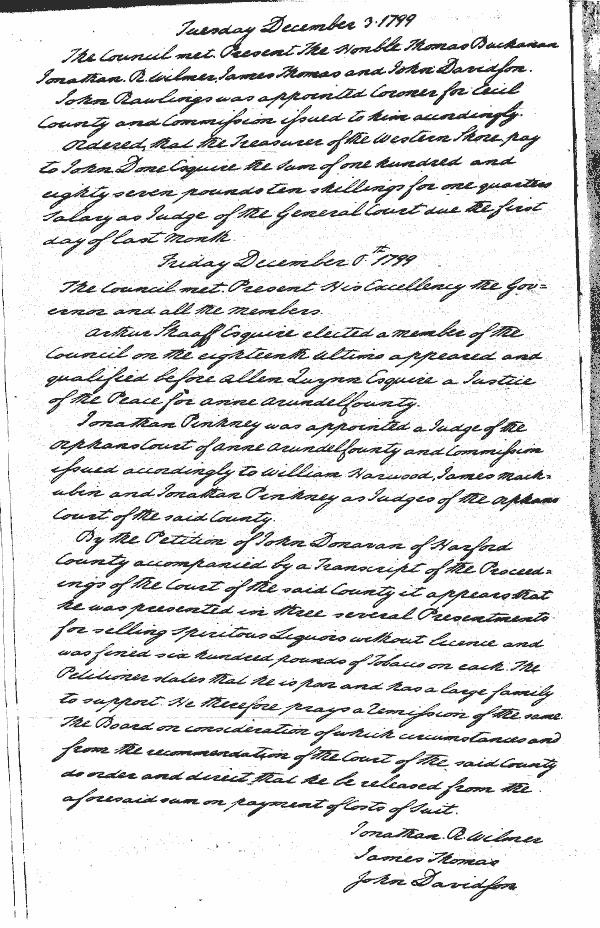 Tuesday December 3. 1799
The Council met. Present The Honble Thomas Buchanan
Jonathan. R. Wilmer, James Thomas and John Davidson.
John Rawlings was appointed Coroner for Cecil
County and Commission issued to him accordingly.
Ordered, that the Treasurer of the Western Shore pay
to John Done Esquire the sum of one hundred and
eighty seven pounds ten shillings for one quarters
Salary as Judge of the General Court due the first
day of last month.
Friday December 1799
The Council met. Present His Excellency the Gov=
ernor and all the members.
Arthur Shaaff Esquire elected a member of the
Council on the eighteenth ultimo appeared and
qualified before Allen Quynn Esquire a Justice
of the Peace for Anne Arundel County.
Jonathan Pinkney was appointed a Judge of the
Orphans Court of Anne Arundel County and Commission
issued accordingly to William Harwood, James Mack=
ubin and Jonathan Pinkney as Judges of the Orphans
Court of the said County.
By the Petition of John Donavan of Harford
County accompanied by a Transcript of the Proceed=
ings of the Court of the said County it appears that
he was presented in three several Presentments
for selling Spiritous Liquors without licence and
was fined six hundred pounds of Tobacco on each. The
Petitioner states that he is poor and has a large family
to support. He therefore prays a remission of the same.
The Board on consideration of which circumstances and
from the recommendation of the Court of the said County
do order and direct that he be released from the
aforesaid sum on payment of Costs of Suit.
Jonathan. R. Wilmer
James Thomas
John Davidson